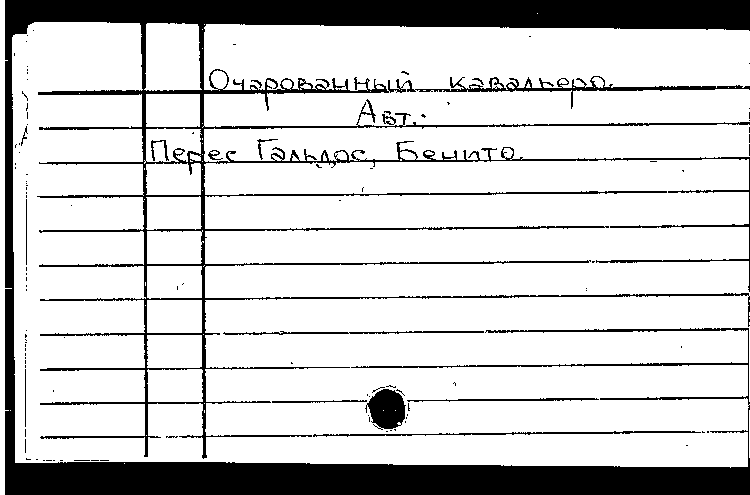 Очарованный кавальеро.
Авт.:
Перес Гальдос, Бенито.